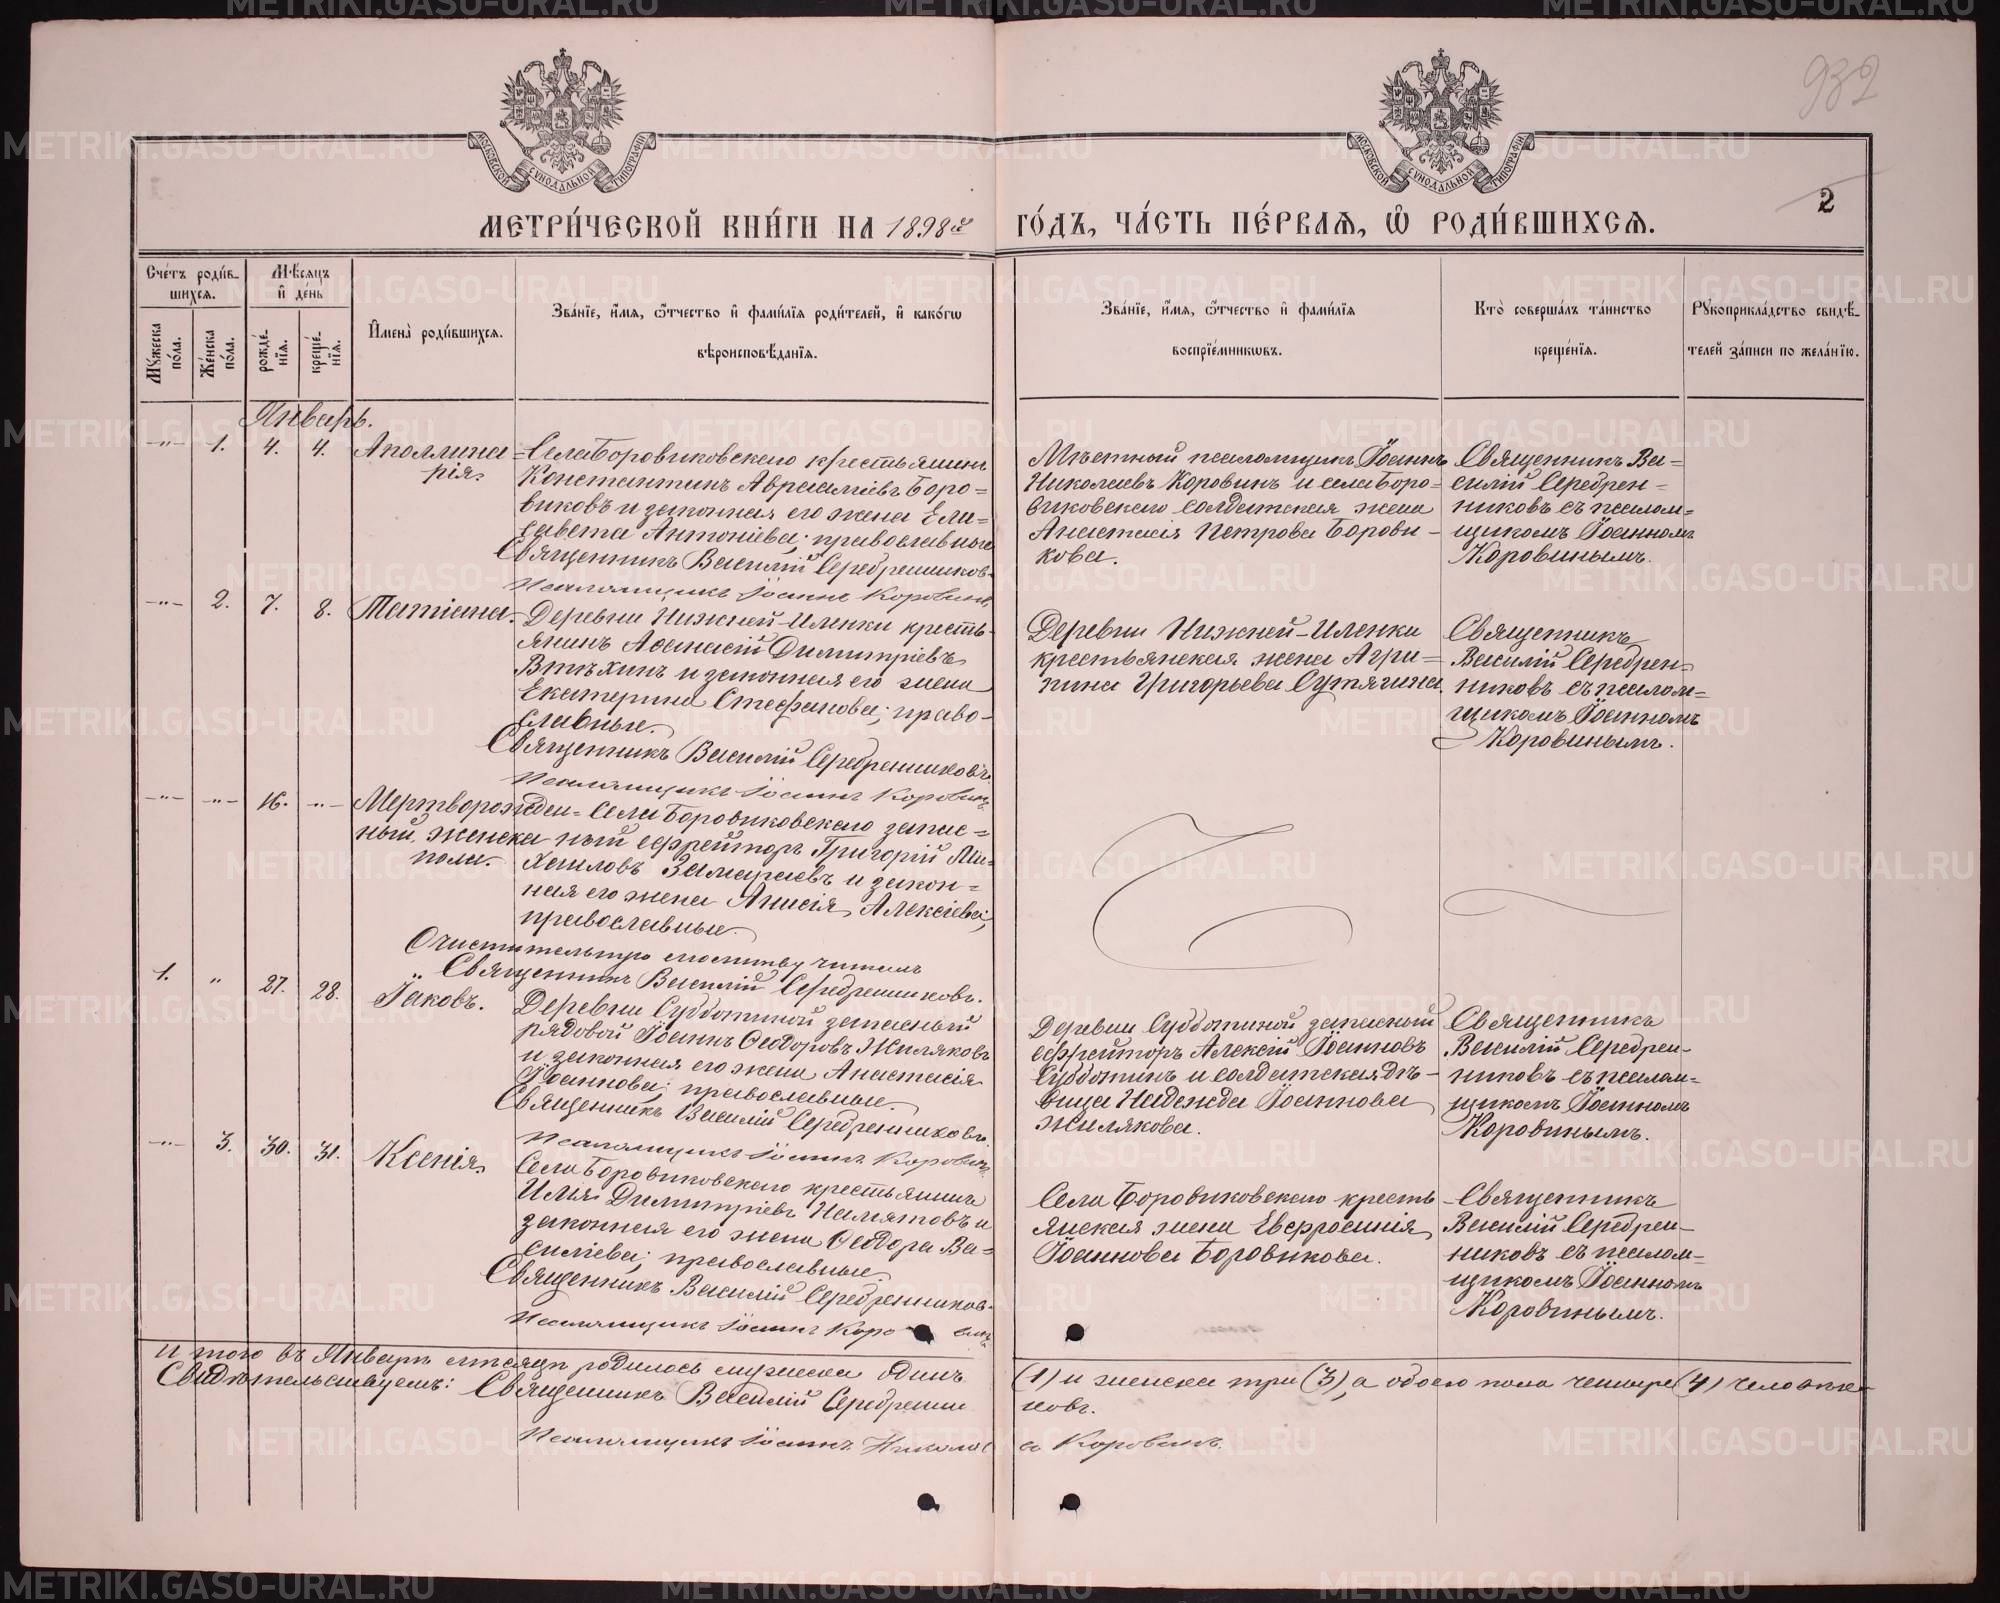 932
МОСКОВСКОЙ СѴНОДАЛЬНОЙ ТИПОГРАФІИ
МОСКОВСКОЙ СѴНОДАЛЬНОЙ ТИПОГРАФІИ
2
МЕТРИ́ЧЕСКОЙ КНИ́ГИ НА 1898й ГО́ДЪ, ЧА́СТЬ ПЕ́РВАѦ, Ѡ҆ РОДИ́ВШИХСѦ.
Сче́тъ роди́в-
шихсѧ.
Мꙋ́жеска по́ла.
Же́нска по́ла.
Мѣ́сѧцъ и҆ де́нь
рожде́-
нїѧ.
креще́-
нїѧ.
И҆мена̀ роди́вшихсѧ.
Зва́нїе, и҆́мѧ, ѻ҆́тчество и҆ фами́лїѧ роди́телей, и҆ како́гѡ
вѣроисповѣ́данїѧ.
Зва́нїе, и҆́мѧ, ѻ҆́тчество и҆ фами́лїѧ
воспрїе́мникѡвъ.
Кто̀ соверша́лъ та́инство
креще́нїѧ.
Рꙋкоприкла́дство свидѣ́-
телей за́писи по жела́нїю.
Январь.
-"- 1. 4. 4. Аполлина
рія.
Села Боровиковскаго крестьянинъ
Константинъ Авраамíевъ Боро=
виковъ и законная его жена Ели=
савета Антоніева; православные
Священникъ Василій Серебренниковъ.
Псаломщикъ Іоаннъ Коровинъ.
Мѣстный псаломщикъ Іоаннъ
Николаевъ Коровинъ и села Боро-
виковскаго солдатская жена
Анастасія Петрова Борови-
кова.
Священникъ Ва=
силій Серебрен=
никовъ съ псалом=
щикомъ Іоанномъ
Коровинымъ.
-"- 2. 7. 8. Татіана.
Деревни Нижней-Иленки кресть-
янинъ Аѳанасій Димитріевъ
Втѣхинъ и законная его жена
Екатерина Стефанова; право-
славные.
Священникъ Василій Серебренниковъ.
Псаломщикъ Іоаннъ Коровинъ
Деревни Нижней-Иленки
крестьянская жена Агри=
пина Григорьева Сутягина
Священникъ
Василій Серебрен
никовъ съ псалом=
щикомъ Іоанномъ
Коровинымъ.
-"- -"- 16. -"- Мертворожден=
ный, женска
пола.
Села Боровиковскаго запас=
ный ефрейторъ Григорій Ми=
хаиловъ Замараевъ и закон=
ная его жена Анисія Алексіева;
православные.
Очистительную молитву читалъ
Священникъ Василій Серебренниковъ.
1. " 27. 28. Іаковъ.
Деревни Субботиной запасный
рядовой Іоаннъ Ѳеодоровъ Жиляковъ
и законная его жена Анастасія
Іоаннова; православные.
Священникъ Василій Серебренниковъ.
Псаломщикъ Іоаннъ Коровинъ
Деревни Субботиной запасный
ефрейторъ Алексій Іоанновъ
Субботинъ и солдатская дѣ-
вица Надежда Іоаннова
Жилякова.
Священникъ
Василій Серебрен-
никовъ съ псалом=
щикомъ Іоанномъ
Коровинымъ.
-"- 3. 30. 31. Ксенія.
Села Боровиковскаго крестьянинъ
Илья Димитріевъ Намятовъ и
законная его жена Ѳеодора Ва=
силіева; православные.
Священникъ Василій Серебренниковъ.
Псаломщикъ Іоаннъ Коровинъ
Села Боровиковскаго кресть
янская жена Евфросинія
Іоаннова Боровикова.
Священникъ
Василій Серебрен-
никовъ съ псалом=
щикомъ Іоанномъ
Коровинымъ.
И того въ Январѣ мѣсяцѣ родилось мужеска одинъ (1) и женска три (3), а обоего пола четыре (4) человѣка
Свидѣтельствуемъ: Священникъ Василій Серебренниковъ.
Псаломщикъ Іоаннъ Николаевъ Коровинъ.
METRIKI.GASO-URAL.RU